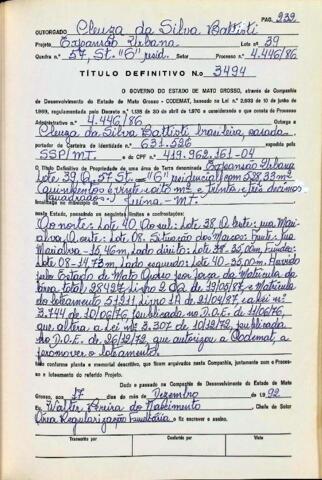 PAG. 239
Cleuza da Silva Battisti
Projeto Expansão Urbana Lote nº 39
Quadra nº 57, St. "G" resid. Setor Processo nº 4.446/86
TÍTULO DEFINITIVO N.o 3494
O GOVERNO DO ESTADO DE MATO GROSSO, através da Companhia
de Desenvolvimento do Estado de Mato Grosso - CODEMAT, baseado na Lei n.º 2.933 de 10 de junho
1969, regulamentada pelo Decreto n.º 1.138 de 30 de abril de 1970 e considerando o que consta do Processo
Administrativo n.º 4.446/86 Outorga a
Cleuza da Silva Battisti brasileira, casada
portador da Carteira de identidade n.º 631.526
SSP/MT. e do CPF nº 419.962.161-04
O Título Definitivo de Propriedade de uma área de Terra denominada Expansão Urbana
Lote: 39 Q. 57 St. "G" Residencial com 528,33 m²
(Quinhentos e vinte e oito m² e trinta e três decímos
quadrados)
localizada no Município de Juina - MT.
neste Estado, passando os seguintes limites e confrontações:
Ao norte: Lote 40 Ao sul: Lote: 38 A leste: rua Mai-
alva A oeste: Lote 08. Situação dos Marcos: Frente: Rua
Maialva 15,46m, Lado direito: Lote 38-35,00m. Fundo:
Lote 08 - 14,73m Lado esquerdo: Lote 40-35,00m. Havido
pelo Estado de Mato Grosso por força da Matricula da
área total 28427, Livro 2 de 19/05/87 e Matricula
do loteamento 51211 Livro 1A de 21/04/87 a Lei nº
3.744 de 10/06/76 publicada no D.O.E. de 11/06/76,
que altera a Lei nº 3.307 de 10/12/72, publicada
no D.O.E. de 26/12/72 que autorizou a Codemat, a
promover o loteamento.
Tudo conforme planta e memorial descritivo, que foram arquivados nesta Companhia, juntamente com o Proces-
so e loteamento do referido Projeto.
Dado e passado na Companhia de Desenvolvimento do Estado de Mato
Grosso, aos 17 dias do mês de Dezembro de 1.992
Eu Walter Pereira do Nascimento Chefe do Setor
Área Regularização Fundiária, fiz escrever e assino.
Transcrito por
Conferido por
Visto